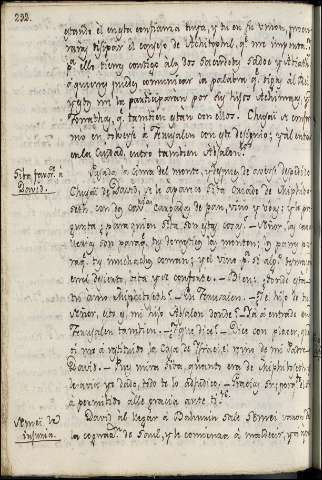 232.
estando el en esta confianza tuya, y tu en su union, procu-
raras disipar el consejo de Achitophel, qe. me importa:
pa. ello tienes contigo alg dos Sacerdotes Sadoc y Abiath
a quienes puedes comunicar la palabra qe. oigas al Rei,
y ellos me la participaran por sus hijos Achimaas, y
Jonathas, qe. tambien estan con ellos. Chusai se confor
mo en volverse à Jerusalen con este designio; y al entrar
en la Ciudad, entro tambien Absalon.
Siba favor. à
David.
Pasada la cima del monte, y despues de averse despedido
Chusai de David, se le aparece Siba Criado de Miphibo-
seth, con dos cargadas de pan, vino y
gunta: para quien Siba son estas cosas? Señor, las ca-
son paraqe. tus domesticos las monten; y panes pa
raqe. tus muchachos coman; y el vino pa. si algo
en el desierto, beba y se conforte. Bien: donde está
tu amo Miphiboseth? En Jerusalen. El hijo de tu
Señor, esto y mi hijo Absalon donde? Ya à entrado en
Jerusalen tambien. Y que dice? Dice con placer, que
te à restituido la Casa de Israel el reino de mi Padre.
David. Pues mira Siba, quanto era de Miphiboseth;
le avia yo dado, todo te lo adjudico. Gracias Sr;
à permitido alle gracia ante ti.
Semei le
injuria.
David al llegar à Bahurim sale Semei varon de
la cognacn. de Saul, y le comienza à maldecir, y à